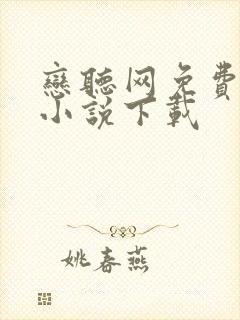 戀聽网免費
小說下載
姚春燕